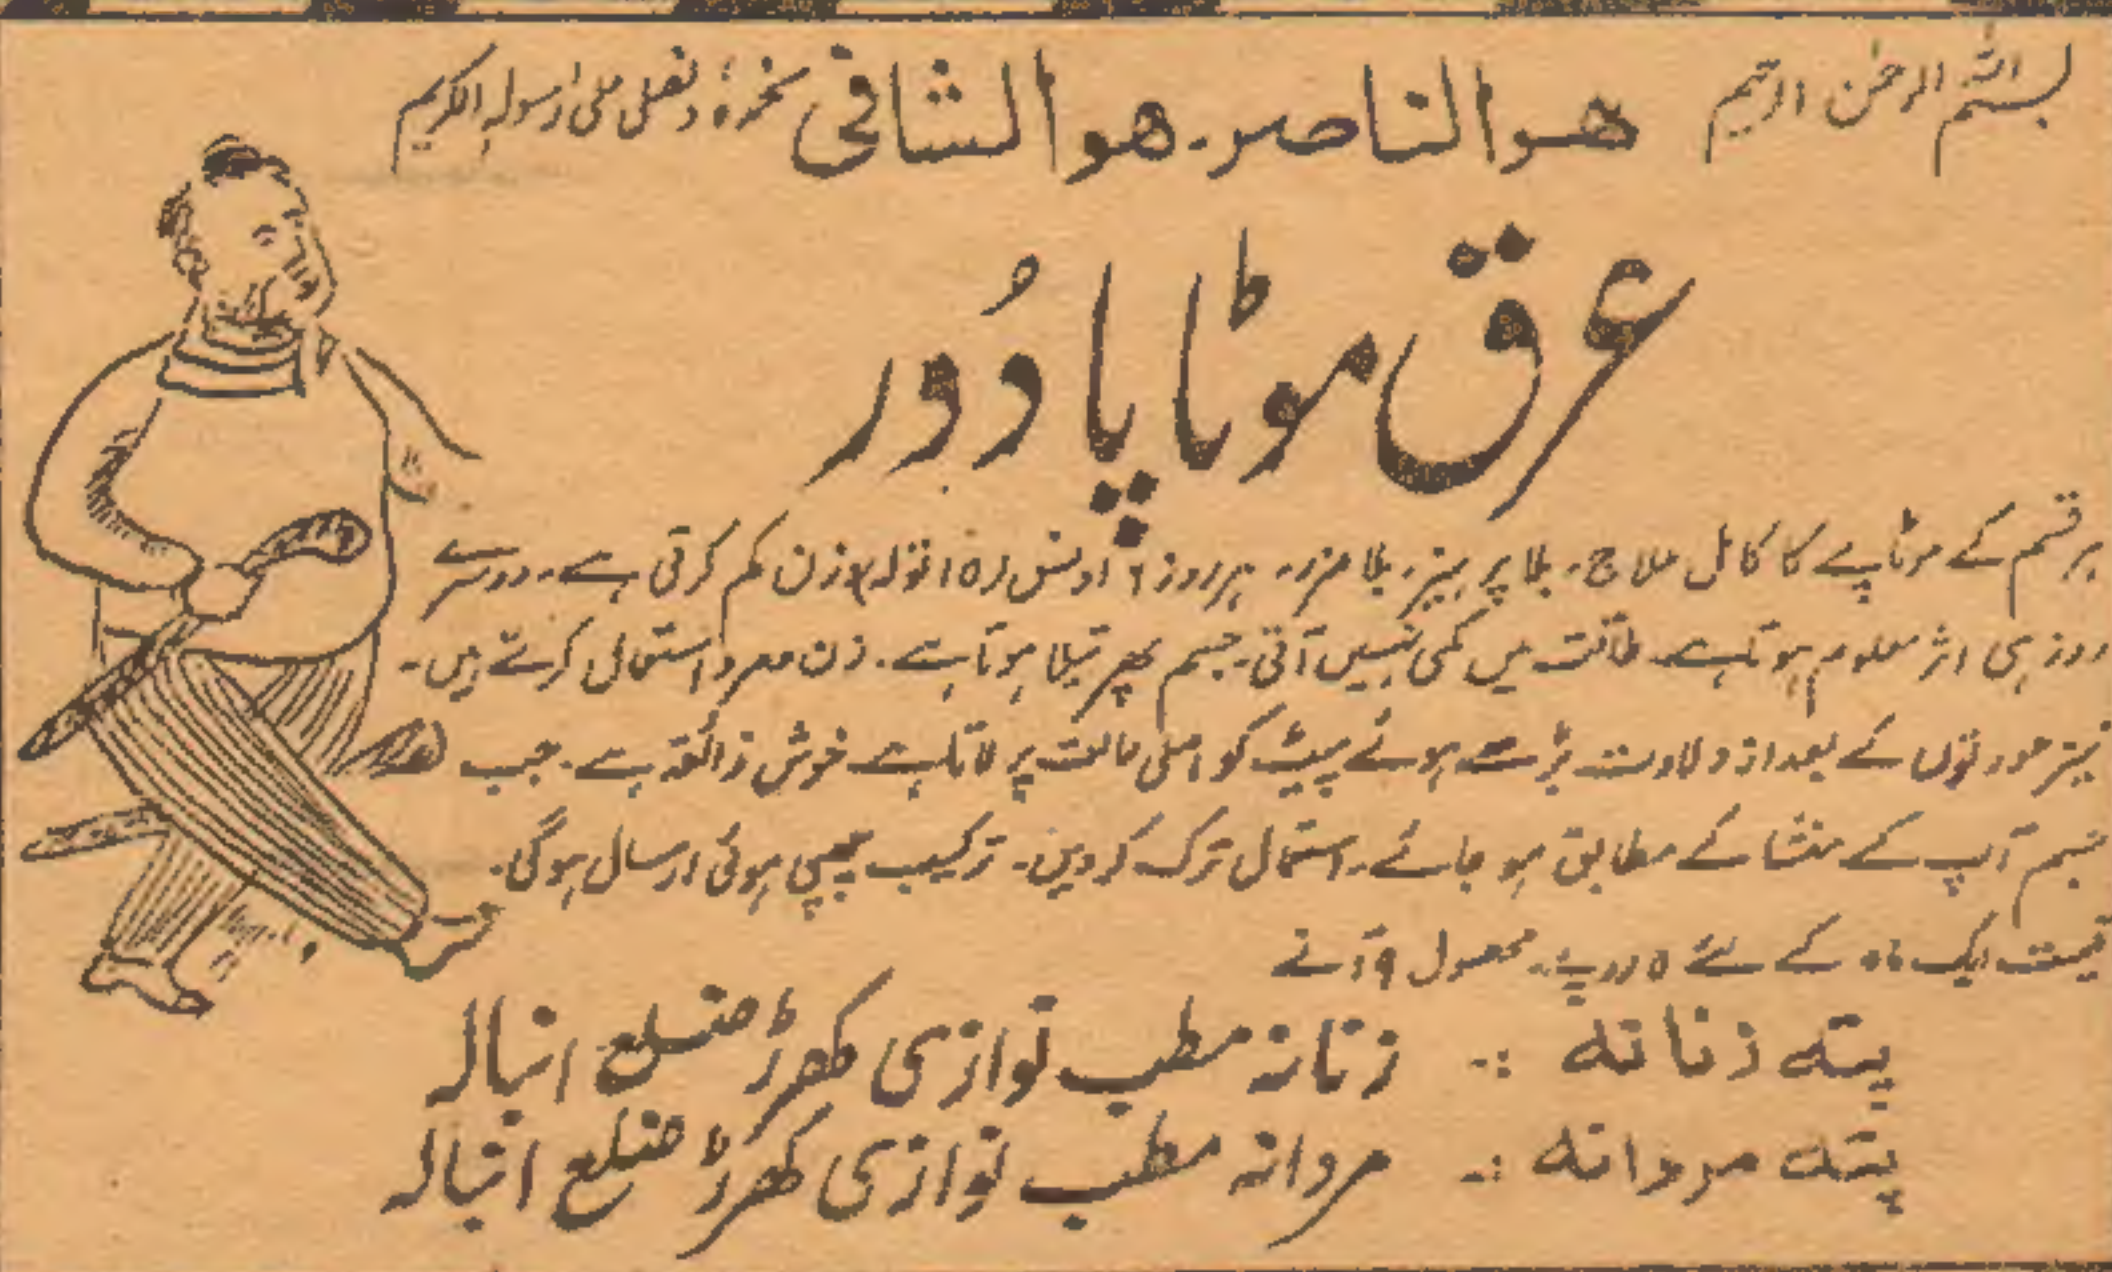 بسم اللہ الرحمٰن الرحیم
ھوالناصر۔ ھوالشافی
نحمدہٗ و نصلی علیٰ رسولہ الکریم
عرق موٹاپا دُور
ہر قسم کے موٹاپے کا کامل علاج۔ بلا پرہیز۔ بلا ضرر۔ ہر روز ۶ اونس (۱۵ تولہ) وزن کم کرتی ہے۔ دوسرے
روز ہی اثر معلوم ہوتا ہے۔ طاقت میں کمی نہیں آتی۔ جسم پھرتیلا ہوتا ہے۔ زن و مرد استعمال کرتے ہیں۔
نیز عورتوں کے بعد از ولادت بڑھے ہوئے پیٹ کو اصلی حالت پر لاتا ہے۔ خوش ذائقہ ہے۔ جب
جسم آپ کے منشا کے مطابق ہو جائے۔ استعمال ترک کردیں۔ ترکیب چھپی ہوئی ارسال ہوگی۔
قیمت ایک ماہ کے لئے ۵ روپے۔ محصول ۹ آنے
پتہ زنانہ :۔ زنانہ مطب نوازی کھرڑ ضلع انبالہ
پتہ مردانہ :۔ مردانہ مطب نوازی کھرڑ ضلع انبالہ